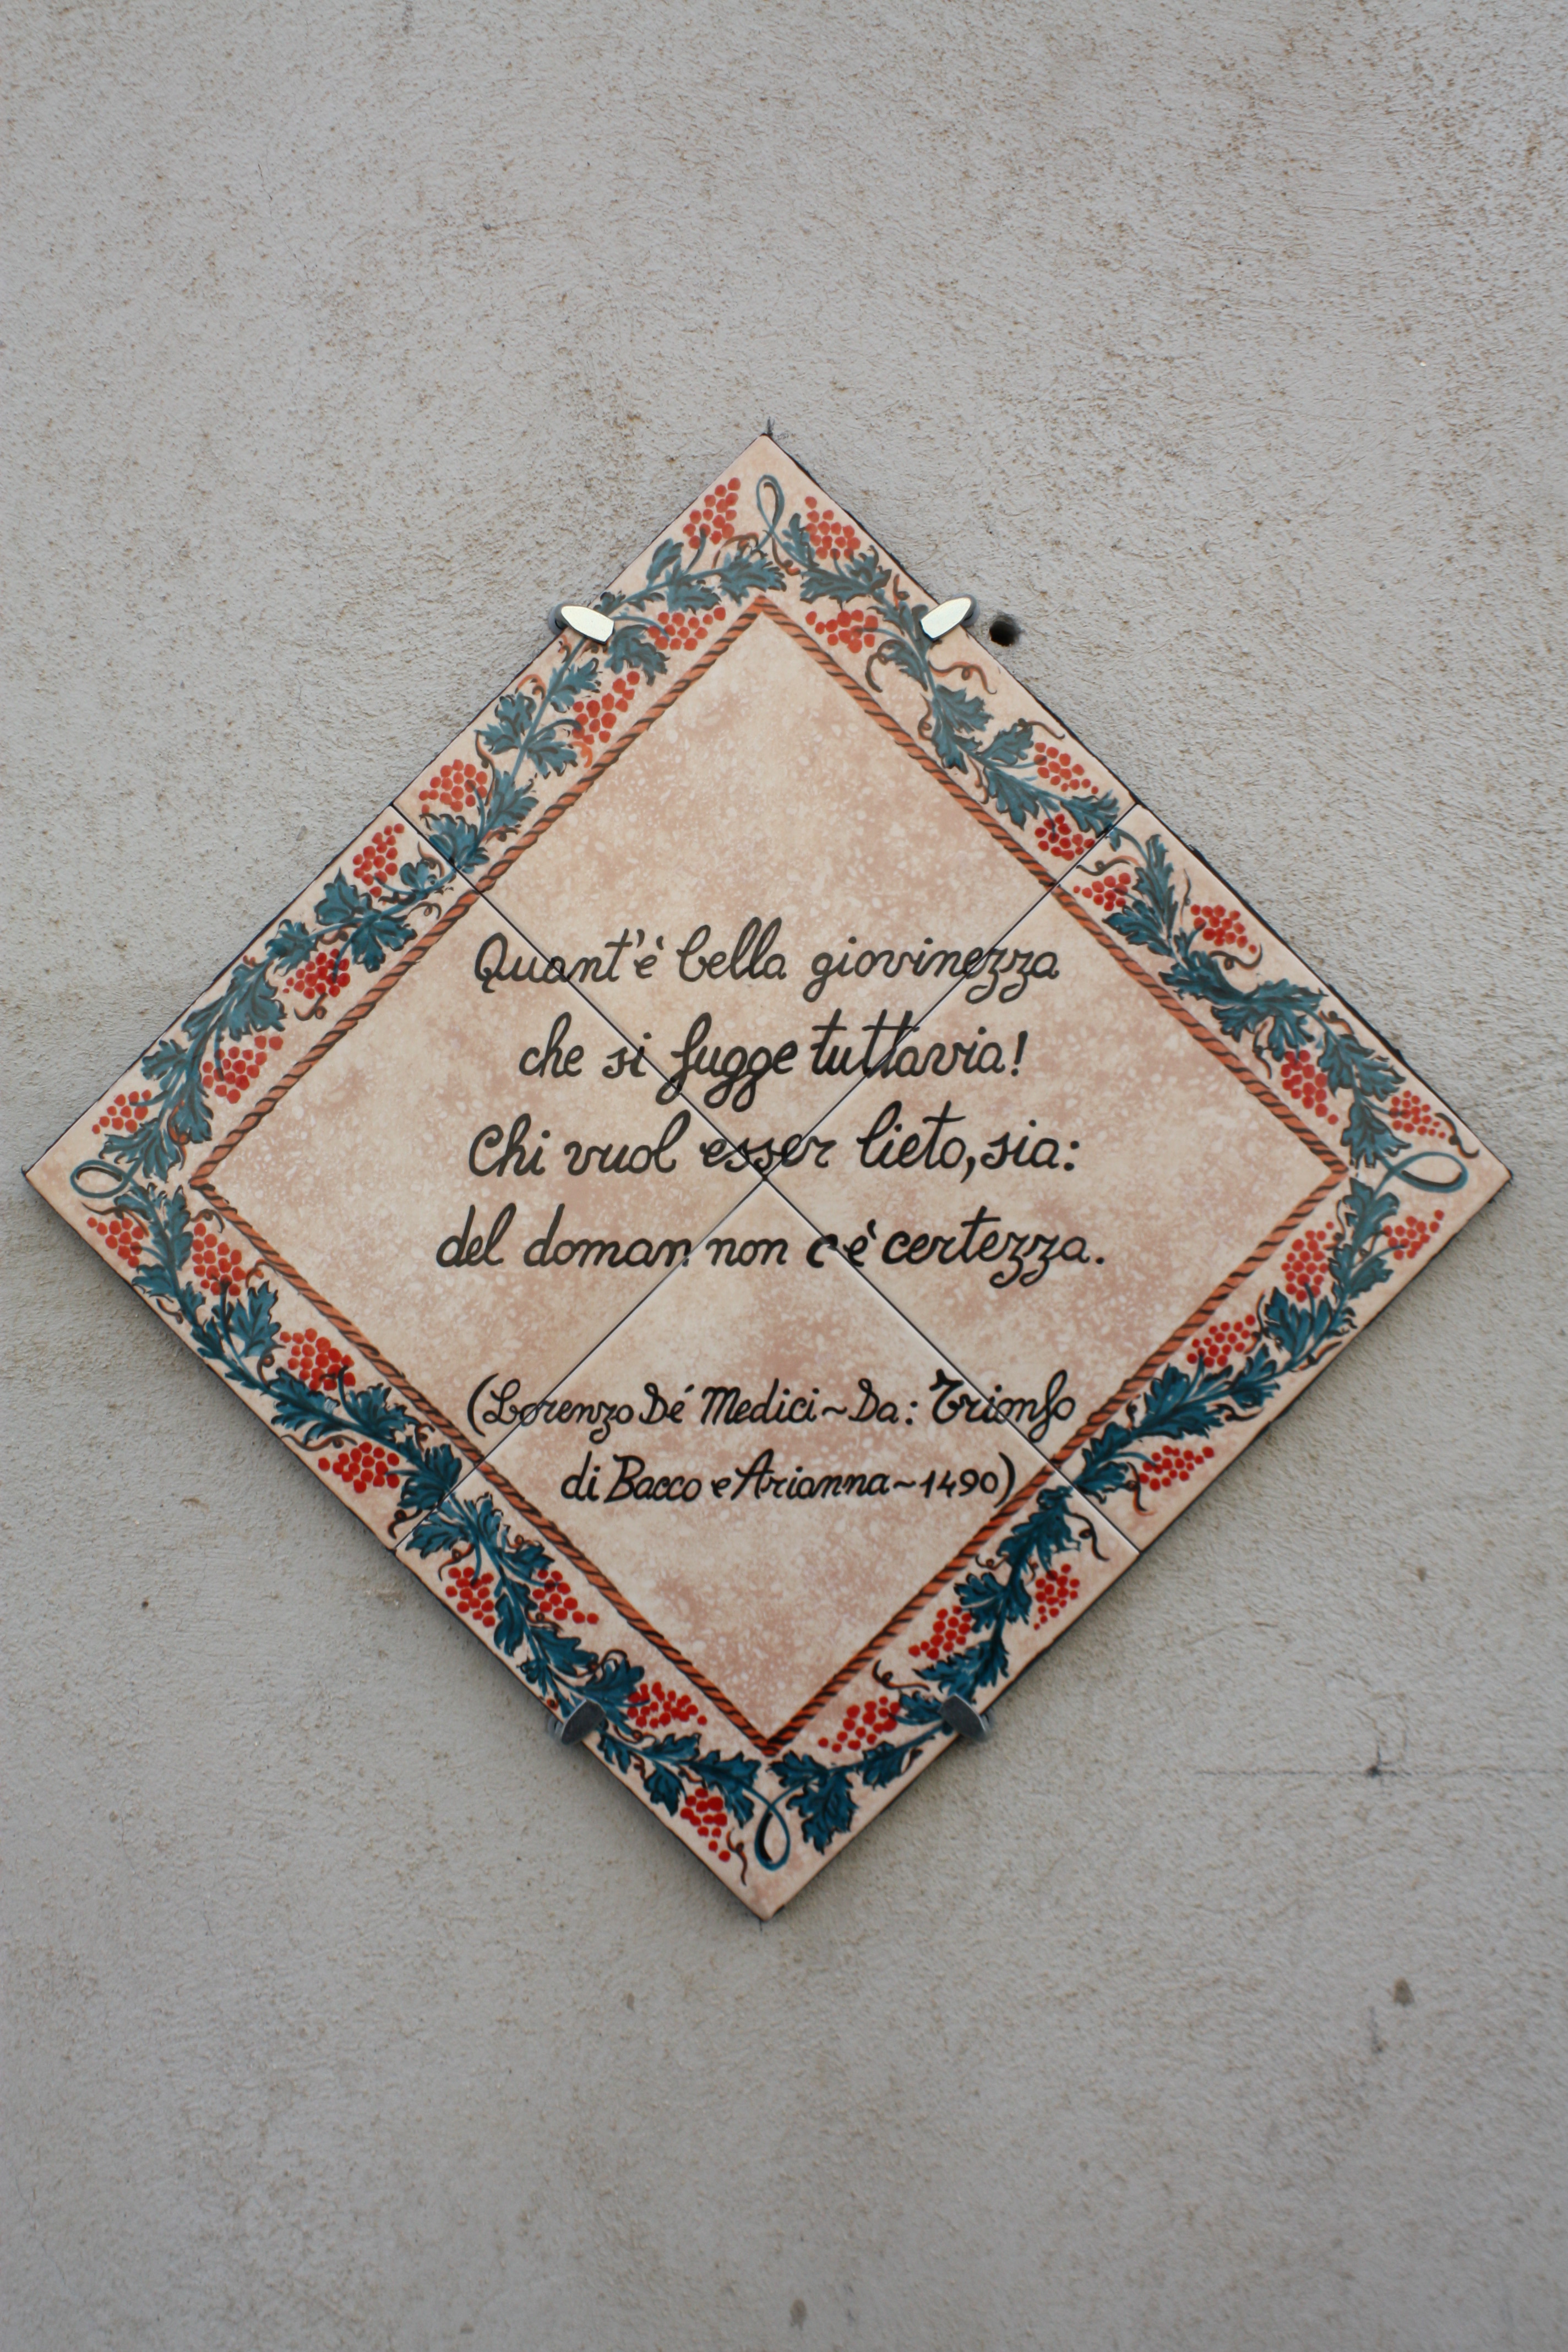 Quant'è bella giovinezza
che si fugge tuttavia!
Chi vuol esser lieto, sia:
del doman non c'è certezza.
(Lorenzo Dé Medici ~ Da: Trionfo
di Bacco e Arianna ~ 1490)